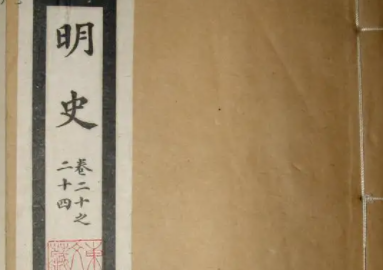 明史
卷二十之
二十四